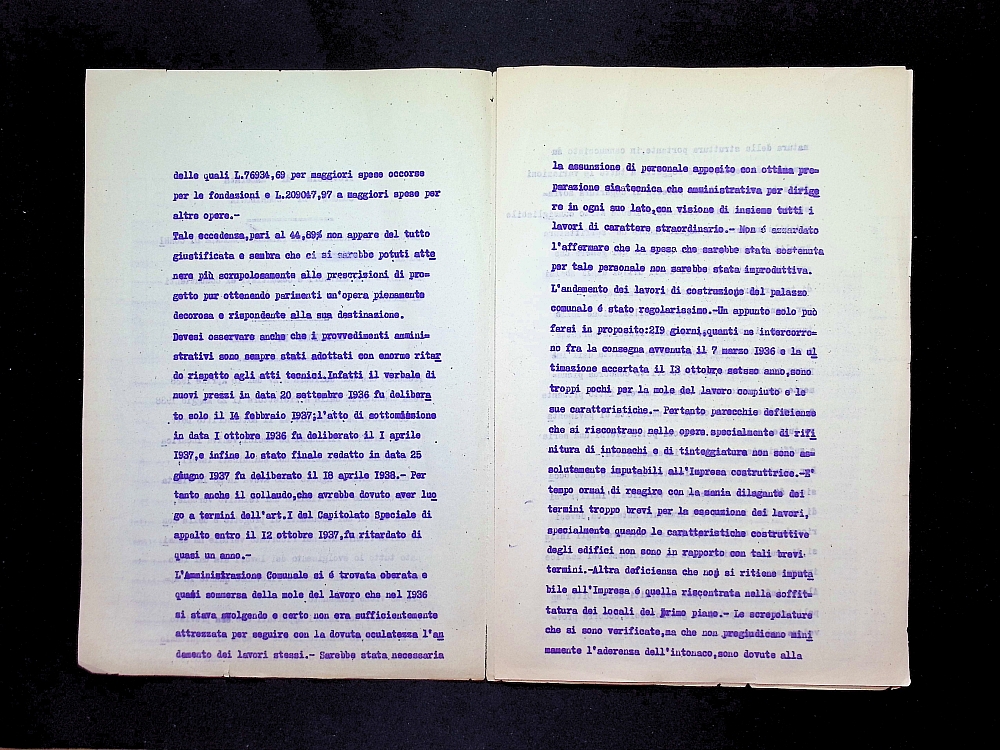 delle quali L.76934,69 per maggiori spese occorse
per le fondazioni e L.209047,97 a maggiori spese per
altre opere.-
Tale eccedenza,pari al 44,69% non appare del tutto
giustificata e sembra che ci si sarebbe potuti atte
nere più scrupolosamente alle prescrizioni di pro=
getto pur ottenendo parimenti un'opera pienamente
decorosa e rispondente alla sua destinazione.
Devesi osservare anche che i provvedimenti ammini=
strativi sono sempre stati adottati con enorme ritar
do rispetto agli atti tecnici.Infatti il verbale di
nuovi prezzi in data 20 settembre I936 fu delibera
to solo il I4 febbraio I937;l'atto di sottomissione
in data I ottobre I936 fu deliberato il I aprile
I937,e infine lo stato finale redatto in data 25
giugno I937 fu deliberato il I8 aprile I938.- Per
tanto anche il collaudo,che avrebbe dovuto aver luo
go a termini dell'art.I del Capitolato Speciale di
appalto entro il I2 ottobre I937,fu ritardato di
quasi un anno.-
L'Amministrazione Comunale si é trovata oberata e
quasi sommersa della mole del lavoro che nel I936
si stava svolgendo e certo non era sufficientemente
attrezzata per seguire con la dovuta oculatezza l'an
damento dei lavori stessi.- Sarebbe stata necessaria
la assunzione di personale apposito con ottima pre=
parazione sia tecnica che amministrativa per dirige
re in ogni suo lato,con visione di insieme tutti i
lavori di carattere straordinario.- Non é azzardato
l'affermare che la spesa che sarebbe stata sostenuta
per tale personale non sarebbe stata improduttiva.
L'andamento dei lavori di costruzione del palazzo
comunale é stato regolarissimo.-Un appunto solo può
farsi in proposito:2I9 giorni,quanti ne intercorro=
no fra la consegna avvenuta il 7 marzo I936 e la ul
timazione accertata il I3 ottobre stesso anno,sono
troppi pochi per la mole del lavoro compiuto e le
sue caratteristiche.- Pertanto parecchie deficienze
che si riscontrano nelle opere specialmente di rifi
nitura di intonachi e di tinteggiatura non sono as=
solutamente imputabili all'Impresa costruttrice.-E'
tempo ormai di reagire con la mania dilagante dei
termini troppo brevi per la esecuzione dei lavori,
specialmente quando le caratteristiche costruttive
degli edifici non sono in rapporto con tali brevi
termini.-Altra deficienza che non si ritiene imputa
bile all'Impresa é quella riscontrata nella soffit=
tatura dei locali del primo piano.- Le screpolature
che si sono verificate,ma che non pregiudicano mini
mamente l'aderenza dell'intonaco,sono dovute alla